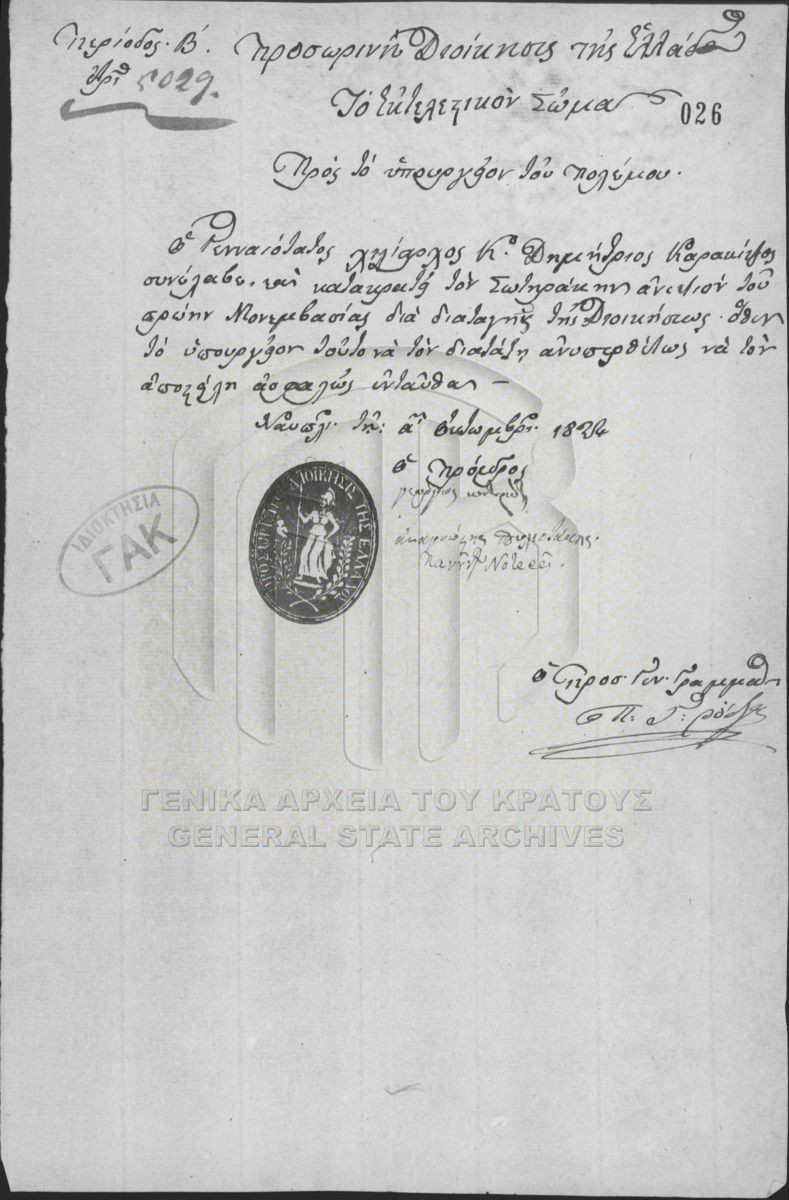 Περίοδος. Β΄.
Ἀρι^θ 5029.
Προσωρινὴ Διοίκησις τῆς Ἑλλάδο^ς
Τὸ Ἐκτελεστικὸν Σῶμα
026
Πρὸς τὸ ὑπουργεῖον τοῦ πολέμου.
Ὁ Γενναιότατος χιλίαρχος Κ^ο Δημήτριος Καρακίτζος
συνέλαβε, καὶ κατακρατῇ τὸν Σωτηράκην ἀνεψιὸν τοῦ
πρώην Μονεμβασίας διὰ διαταγῆς τῆς Διοικήσεως. ὅθεν
τὸ ὑπουργεῖον τοῦτο νὰ τὸν διατάξῃ ἀνυπερθέτως νὰ τὸν
ἀποστείλῃ ἀσφαλῶς ἐνταῦθα –
Ναυπλ. τῇ: αῃ Ὀκτωμβρ. 1824
Ὁ Πρόεδρος
ΠΡΟΣΩΡΙΝΗ ΔΙΟΙΚΗΣΙΣ ΤΗΣ ΕΛΛΑΔΟΣ
ΙΔΙΟΚΤΗΣΙΑ
ΓΑΚ
Πανούτζος Νοταρᾶς.
Ὁ Προσ. Γεν. Γραμματ
Π. Γ: Ρόδιος
ΓΕΝΙΚΑ ΑΡΧΕΙΑ ΤΟΥ ΚΡΑΤΟΥΣ
GENERAL STATE ARCHIVES